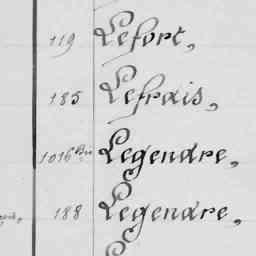 119 Lefort,
185 Lefrais,
1016 Bis Legendre,
188 Legendre,